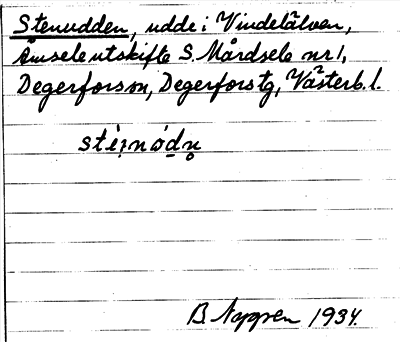 Stenudden, udde i Vindelälven,
Åmsele utskifte S. Mårdsele nr 1,
Degerforssn, Degerforstg, Västerb. l.
B. Nygren 1934.